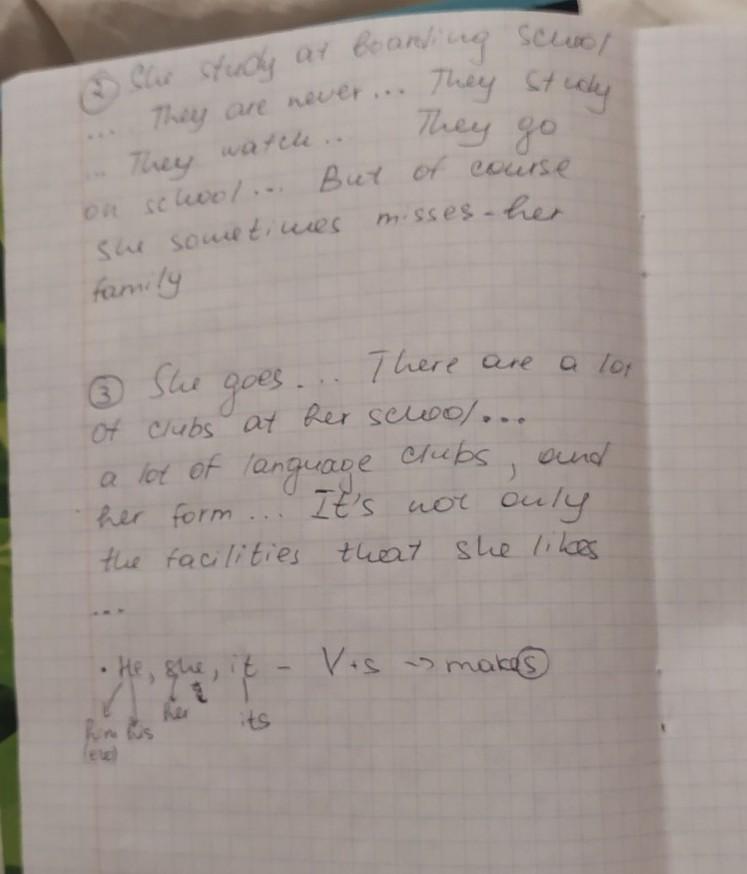 ② She study at boarding school
... They are never... They study
... They watch.. They go
on school... But of course
she sometimes misses her
family
③ She goes.... There are a lot
of clubs at her school...
a lot of language clubs, and
her form... It's not only
the facilities that she likes
...
• He, she, it - V+s -> makes
him his her its
(его)